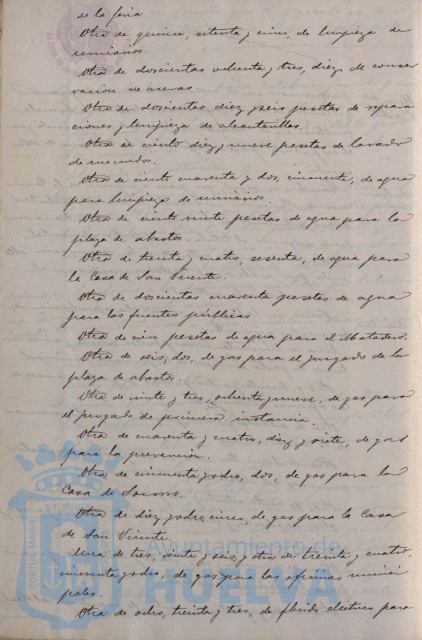 de la feria
Otra de quince, setenta y cinco, de limpieza de
urinarios.
Otra de doscientas ochenta y tres, diez, de conser
vación de aceras.
Otra de doscientas diez y seis pesetas de repara
ciones y limpieza de alcantarillas.
Otra de ciento diez y nueve pesetas de lavado
de
Otra de ciento cuarenta y dos, cincuenta, de agua
para limpieza de urinarios.
Otra de ciento veinte pesetas de agua para la
plaza de abastos.
Otra de treinta y cuatro, sesenta, de agua para
la Casa de San Vicente.
Otra de doscientas cuarenta pesetas de agua
para las fuentes públicas
Otra de cien pesetas de agua para el Matadero.
Otra de seis, dos, de gas para el juzgado de la
plaza de abastos.
Otra de veinte y tres, ochenta y nueve, de gas para
el juzgado de primera instancia.
Otra de cuarenta y cuatro, diez y siete, de gas
para la prevención.
Otra de cincuenta y ocho, dos, de gas para la
Casa de Socorro.
Otra de diez y ocho, cinco, de gas para la Casa
de San Vicente.
Otra de tres, veinte y seis, y otra de treinta y cuatro,
cincuenta y ocho, de gas para las oficinas munici
pales.
Otra de ocho, treinta y tres, de fluido eléctrico para
Ayuntamiento de
HUELVA